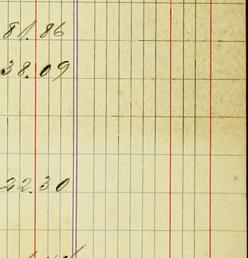 81.86
38.09
22.30